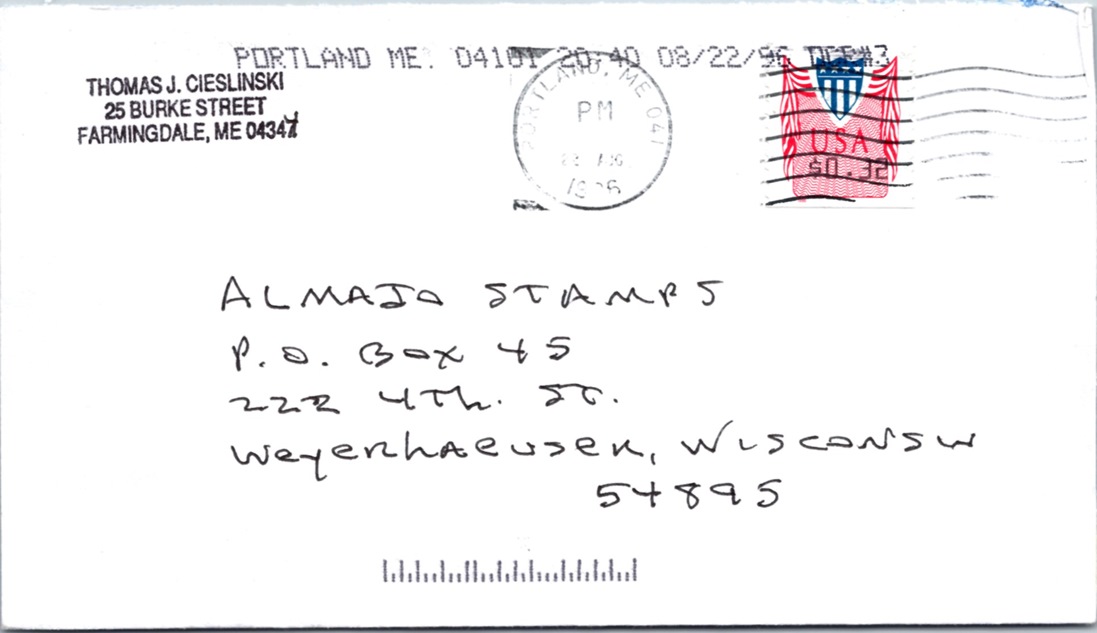 PORTLAND ME. 04101 20:40 08/22/96 DCS#3
THOMAS J. CIESLINSKI
25 BURKE STREET
FARMINGDALE, ME 04347
PORTLAND, ME 041
PM
1996
USA
$0.32
ALMAJO STAMPS
P.O. BOX 45
222 4TH. ST.
WEYERHAEUSER, WISCONSIN
54895